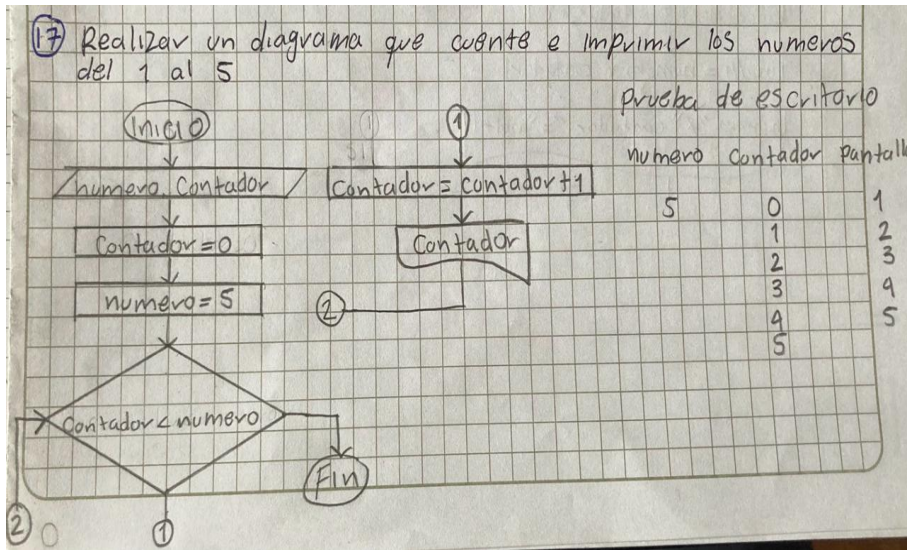 17 Realizar un diagrama que cuente e imprimir los numeros
del 1 al 5
Inicio
numero, Contador
Contador=0
numero=5
Contador<numero
Fin
2
1
1
Contador=contador+1
Contador
2
prueba de escritorio
numero Contador Pantall
5 0 1
1 2
2 3
3 4
4 5
5